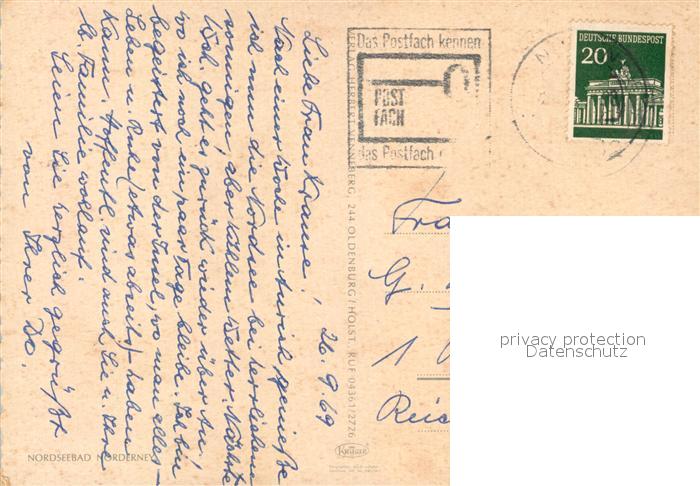 26.9.69
Liebe Frau Krause!
Nach einer Woche in Aurich genieße
ich nun die Nordsee bei herrlichem
sonnigen, aber kühlem Wetter. Nächste
Woch. geht es zurück wieder über Au.,
wo ich noch ein paar Tage bleibe. Ich bin
begeistert von der Insel, wo man alles –
Leben u. Ruhe (etwas abseits) – haben
kann. Hoffentl. sind auch Sie u. Ihre
lb. Familie wohlauf.
Seien Sie herzlich gegrüßt
von Ihrer Do.
NORDSEEBAD NORDERNEY
VERLAG HERBERT VENNEBERG, 244 OLDENBURG/HOLST. RUF 04361/2726
Krüger
Das Postfach kennen
POST
FACH
das Postfach
DEUTSCHE BUNDESPOST
20
Fra
G.
1
Reic
privacy protection
Datenschutz